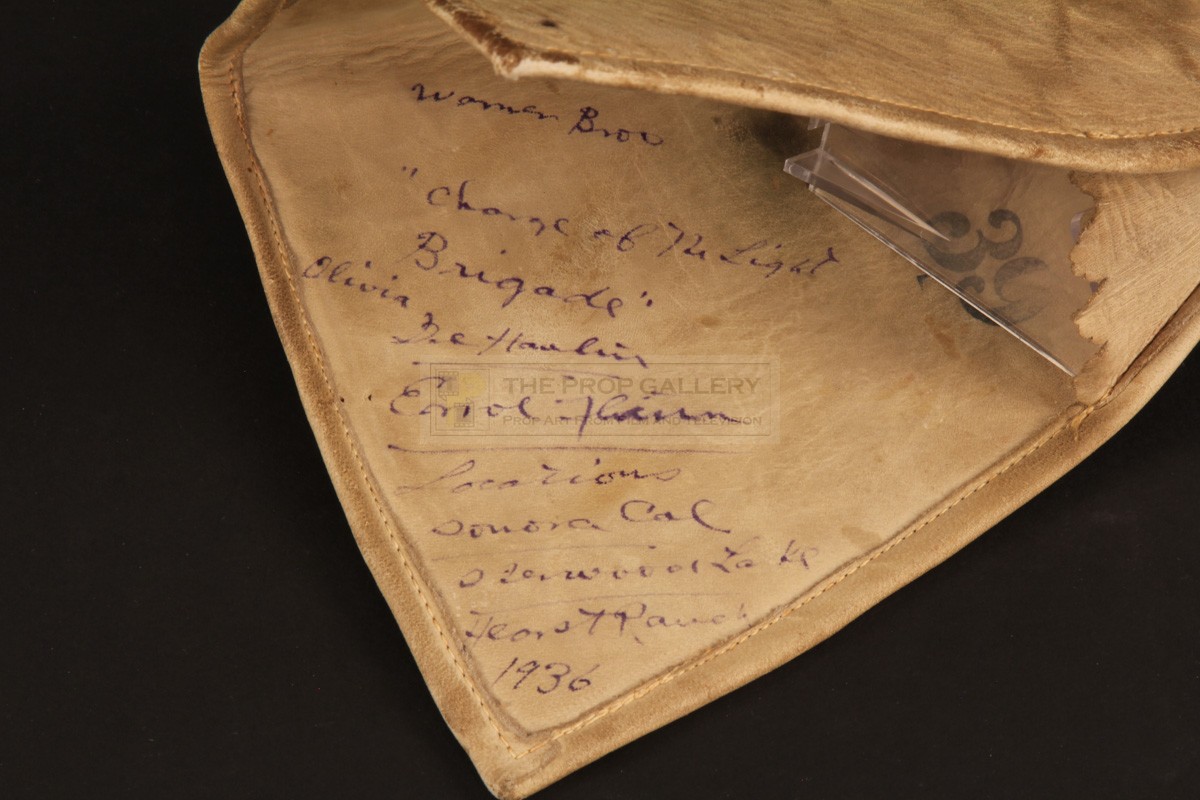 Warner Bros
"Charge of The Light
Brigade".
Olivia
De Havilin
Errol Flinn
Locations
Sonora Cal
Sherwood Lake
Hearst Ranch
1936
THE PROP GALLERY
PROP ART FROM FILM AND TELEVISION